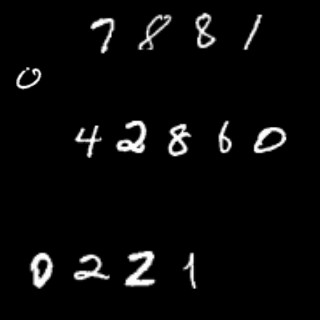 7881
0
42860
0221